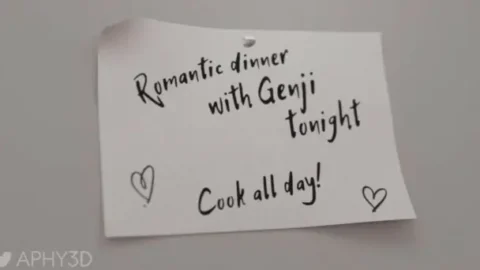 Romantic dinner
with Genji
tonight
Cook all day!
APHY3D